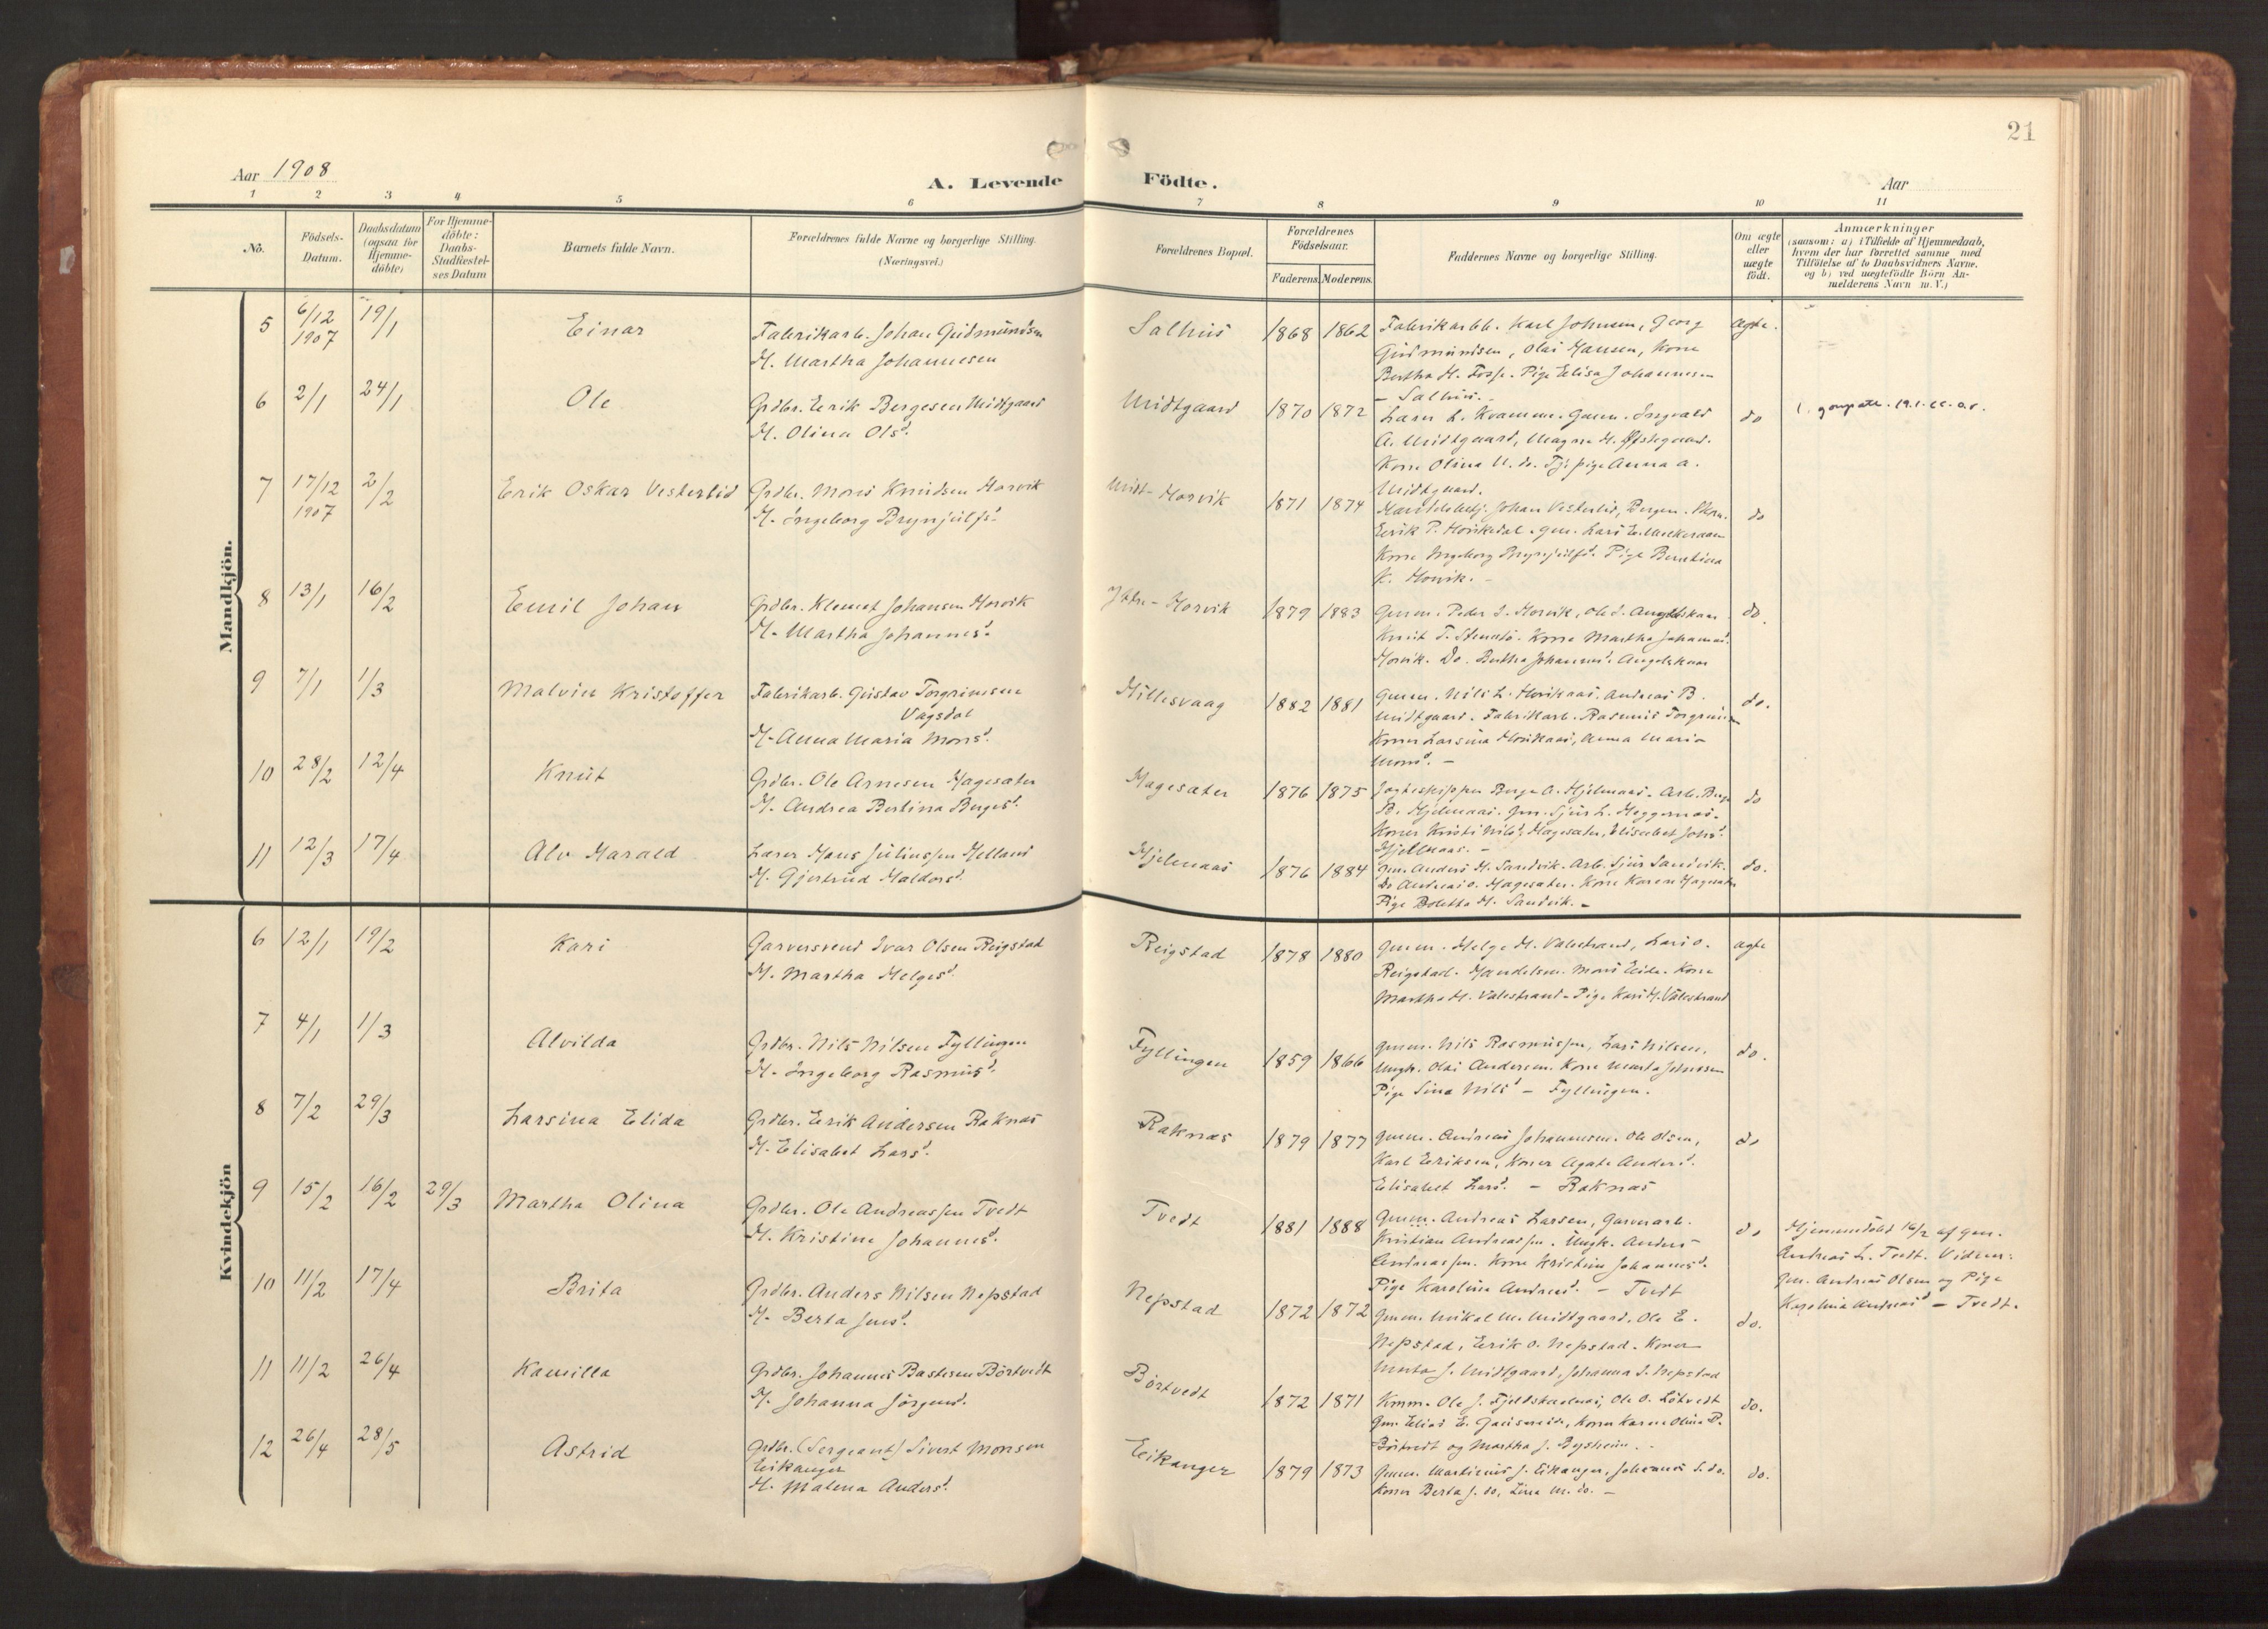 21
Aar 1908
A. Levende Födte.
Aar
1 2 3 4 5 6 7 8 9 10 11
No.
Födsels-Datum.
Daabsdatum (ogsaa for Hjemme-döbte)
For Hjemme-döbte: Daabs-Stadfæstel-ses Datum
Barnets fulde Navn.
Forældrenes fulde Navne og borgerlige Stilling.
(Næringsvei.)
Forældrenes Bopæl.
Forældrenes Födselsaar.
Faderens. Moderens.
Faddernes Navne og borgerlige Stilling.
Om ægte eller uægte födt.
Anmærkninger
(saasom: a) i Tilfælde af Hjemmedaab,
hvem der har forrettet samme med
Tilföielse af to Daabsvidners Navne.
og b) ved uægtefödte Börn An-
melderens Navn m.V.)
Mandkjön.
5 6/12 1907 19/1 Einar
Fabrikarb. Johan Gudmundsen
H. Martha Johannesen
Salhus 1868 1862
Fabrikarbb. Karl Johnsen, Georg
Gudmundsen, Olai Hansen, Kone
Bertha H. Fosse. Pige Elisa Johannesen
- Salhus. -
Ægte.
6 2/1 24/1 Ole
Grdbr. Erik Bergesen Midtgaard
H. Olina Olsd.
Midtgaard 1870 1872
Lærer L. Kvamme. Gmm. Ingvald
A. Midtgaard, Magne H. Østegaard.
Kone Olina U. do. Tj. pige Anna A.
Midtgaard.
do
7 17/12 1907 2/2 Erik Oskar Vesterlid
Grdbr. Mons Knudsen Horvik
H. Ingeborg Brynjulfsd.
Midt-Horvik 1871 1874
Johan Vesterlid, Bergen.
Erik P.
Kone Ingeborg Brynjulfsd. Pige Berntina
K. Horvik. -
do
8 13/1 16/2 Emil Johan
Grdbr. Klemet Johansen Horvik
H. Martha Johannesd.
Ytre-Horvik 1879 1883
Gmm. Peder J. Horvik, Ole J. Angelskaar
Knut T. Kone Martha Johannesd.
Horvik. Do. Bertha Johannesd. Angelskaar
do.
9 7/1 1/3 Malvin Kristoffer
Fabrikarb. Gustav Torgrimsen
Vagsdal
H. Anna Maria Monsd.
Hillesvaag 1882 1881
Gmm. Nils L. Andreas B.
Midtgaard. Fabrikarb. Rasmus Torgrimsen
Koner Larsina Anna Maria
Monsd. -
do.
10 28/2 12/4 Knut
Grdbr. Ole Arnesen Hagesæter
H. Andrea Bertina Bergesd.
Hagesæter 1876 1875
Jagteskipper Berge A. Hjelmaas. Arb. Berge
B. Hjelmaas. Gm. Sjur L. Heggernæs.
Koner Kristi Nilsd. Hagesæter, Elisabet Johsd.
Hjelmaas. -
do
11 12/3 17/4 Alv Harald
Lærer Hans Juliussen Helland
H. Gjertrud Haldorsd.
Hjelmaas 1876 1884
Gm. Anders H. Sandvik. Arb. Sjur Sandvik.
Do Andreas O. Hagesæter. Kone Karen Hagesæter
Pige Boletta H. Sandvik. -
do.
Kvindekjön
6 12/1 19/2 Kari
Garversvend Ivar Olsen Reigstad
H. Martha Helgesd.
Reigstad 1878 1880
Gmm. Helge H. Valestrand, Lars O.
Reigstad. Handelsm. Mons Eide. Kone
Martha H. Valestrand - Pige Kari H. Valestrand
ægte
7 4/1 1/3 Alvilda
Grdbr. Nils Nilsen Fyllingen
H. Ingeborg Rasmusd.
Fyllingen 1859 1866
Gmm. Nils Rasmussen, Lars Nilsen.
Ungk. Olai Andersen. Kone Marta Johnsen
Pige Sina Nilsd. - Fyllingen.
do.
8 7/2 29/3 Larsina Elida
Grdbr. Erik Andersen Raknæs
H. Elisabet Larsd.
Raknæs 1879 1877
Gmm. Andreas Johannesen. Ole Olsen,
Karl Eriksen, Koner Agate Andersd.
Elisabet Larsd. - Raknæs
do
9 15/2 16/2 29/3 Martha Olina
Grdbr. Ole Andreassen Tvedt
H. Kristine Johannesd.
Tvedt 1881 1888
Gmm. Andreas Larsen, Garverarb.
Kristian Andreassen. Ungk. Anders
Andreassen. Kone Kristine Johannesd.
Pige Karoline Andreasd. - Tvedt
do
Hjemmedöbt 16/2 af gm.
Andreas L. Tvedt. Vidner:
Gm. Andreas Olsen og Pige
Karoline Andreasd. - Tvedt.
10 11/2 17/4 Brita
Grdbr. Anders Nilsen Nepstad
H. Berta Jensd.
Nepstad 1872 1872
Gmm. Mikal M. Midtgaard, Ole E.
Nepstad, Erik O. Nepstad. Koner
Marta J. Midtgaard, Johanna S. Nepstad
do.
11 11/2 26/4 Kamilla
Grdbr. Johannes Bastesen Börtvedt
H. Johanna Jörgensd.
Börtvedt 1872 1871
Gmm. Ole J. Ole O. Lötvedt
Gm. Elias E. Koner Karen Olina P.
Börtvedt og Martha J. Bysheim. -
do.
12 26/4 28/5 Astrid
Grdbr. (Sergeant) Sivert Monsen
Eikanger
H. Malena Andersd.
Eikanger 1879 1873
Gmm. Martinus J. Eikanger, Johannes S. do.
Koner Berta J. do, Lina M. do. -
do.